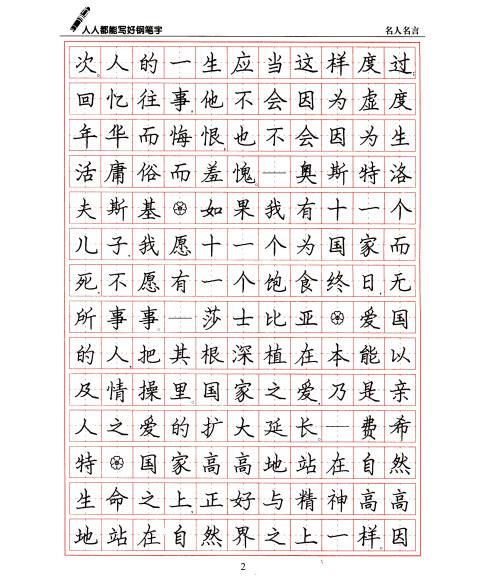 人人都能写好钢笔字
名人名言
次人的一生应当这样度过
回忆往事,他不会因为虚度
年华而悔恨,也不会因为生
活庸俗而羞愧。——奥斯特洛
夫斯基❀如果我有十一个
儿子,我愿十一个为国家而
死,不愿有一个饱食终日,无
所事事——莎士比亚❀爱国
的人,把其根深植在本能以
及情操里。国家之爱,乃是亲
人之爱的扩大延长。——费希
特❀国家高高地站在自然
生命之上,正好与精神高高
地站在自然界之上一样。因
2